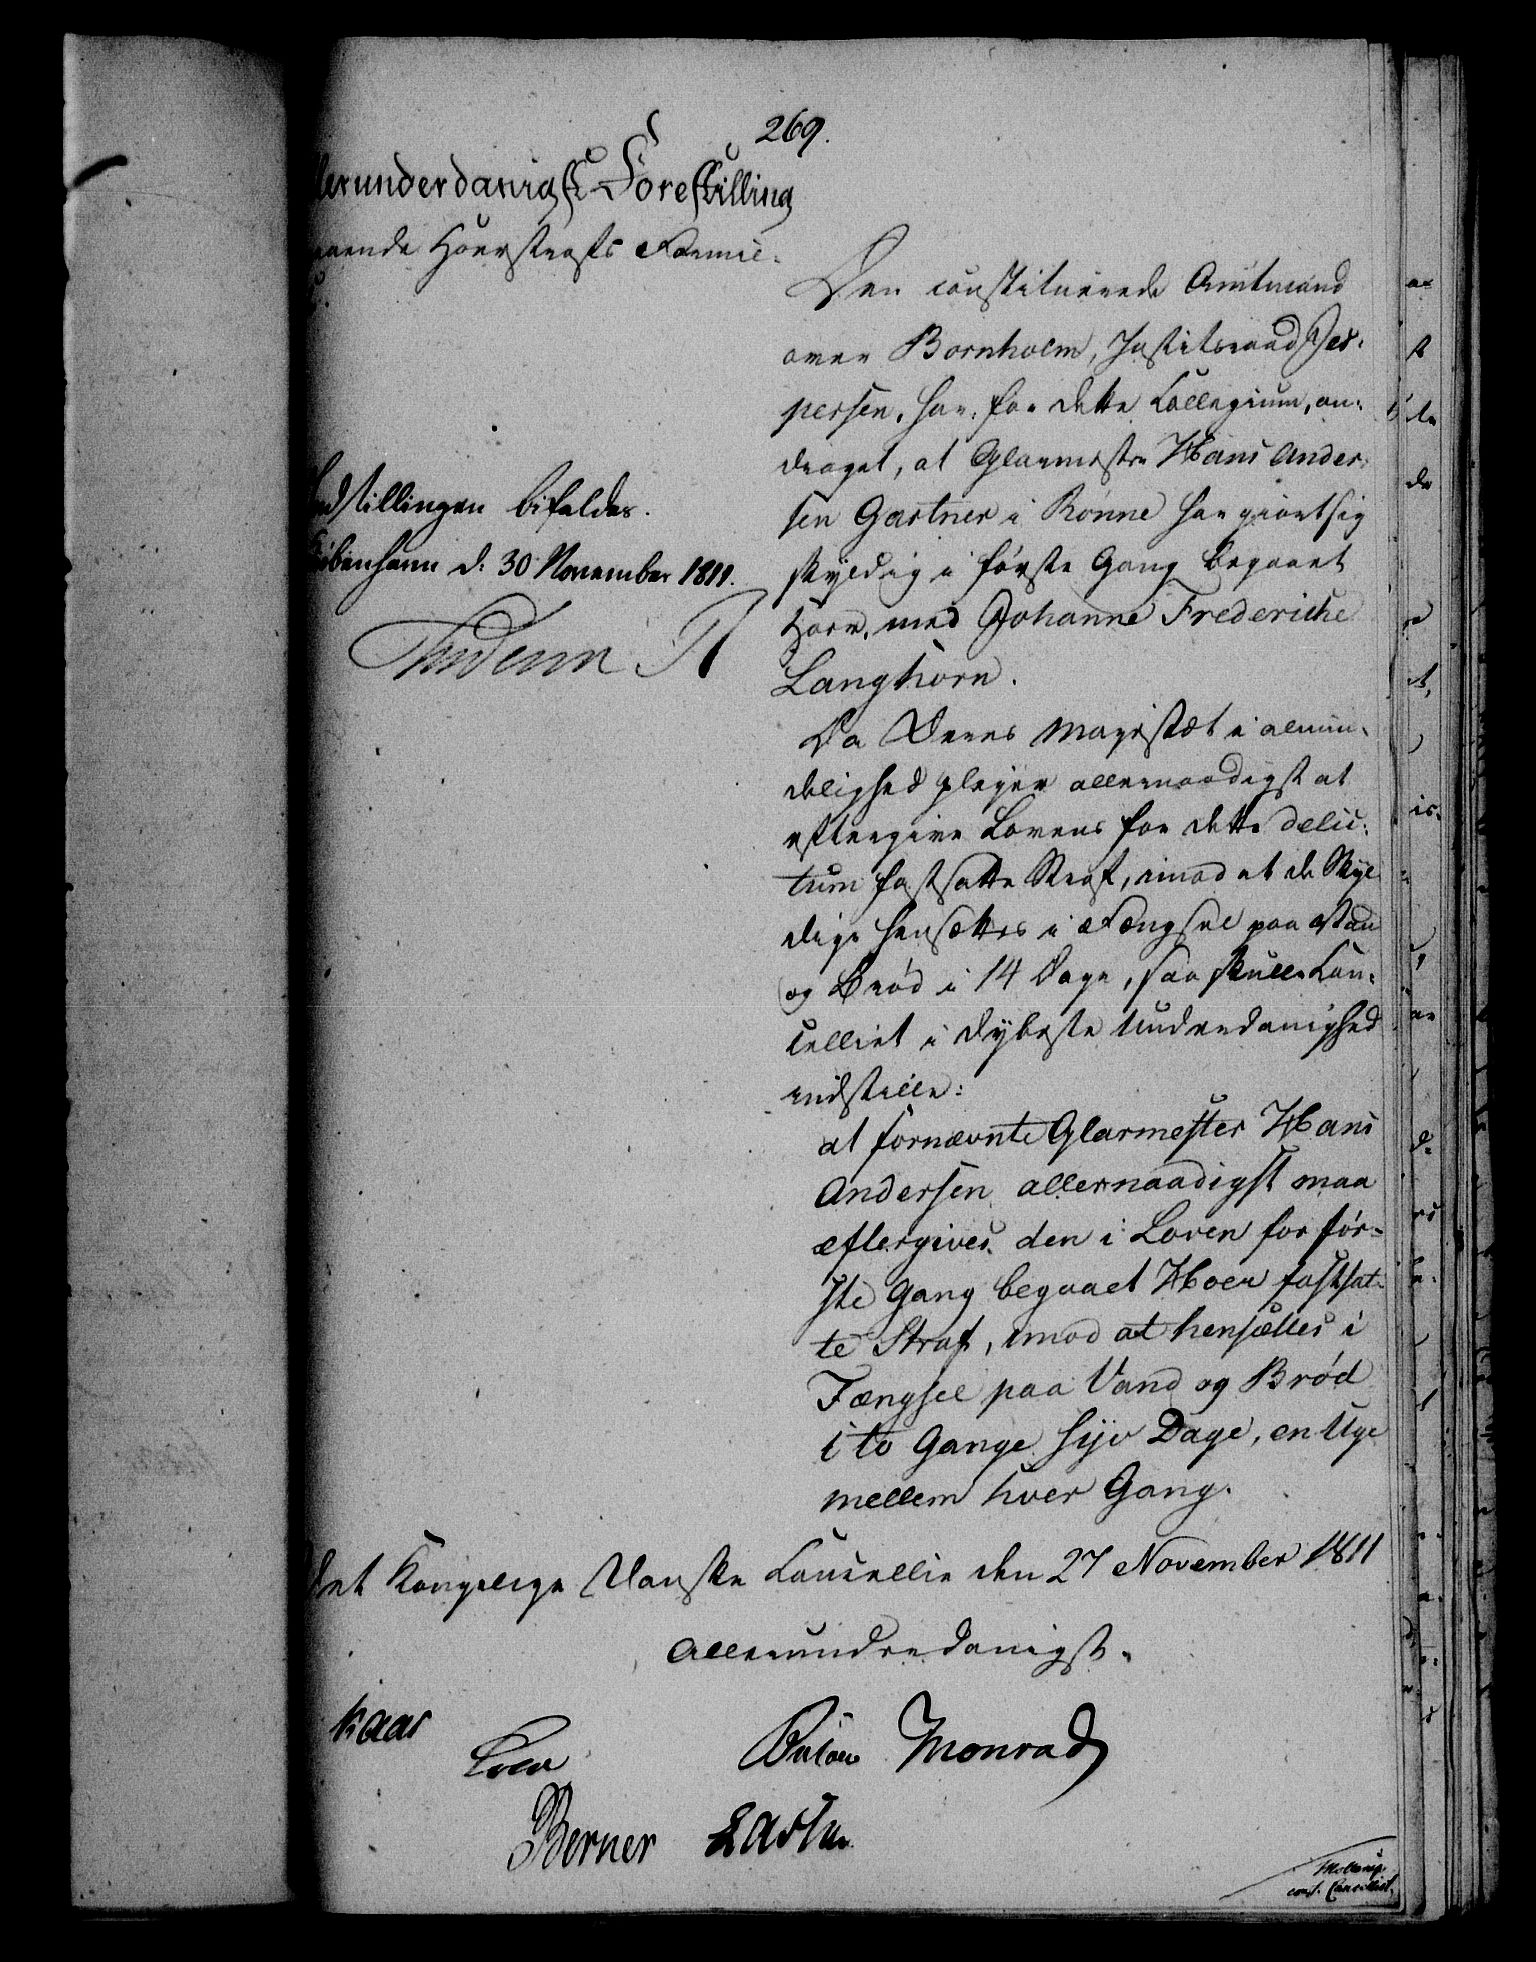 269.
llerunderdanigst Forestilling
gaaende Hoerstrafs Remis-
Den constituerede Amtmand
over Bornholm, Justitsraad Jes-
persen, har for dette Collegium, an-
draget, at Glarmester Hans Ander-
sen Gartner i Rønne har giort sig
skyldig i første Gang begaaet
Hoer, med Johanne Frederiche
Langhorn.
Indstillingen bifaldes.
Kiøbenhavn d. 30 November 1811.
Frederik R
Da Deres Majestæt i almin-
delighed pleier allernaadigst at
eftergive Lovens for dette delic-
tum fastsatte Straf, imod at de Skyl-
dige hensættes i Fængsel paa Vand
og Brød i 14 Dage, saa skulle Can-
celliet i dybeste Underdanighed
indstille:
at fornævnte Glarmester Hans
Andersen allernaadigst maa
eftergives den i Loven for før-
ste Gang begaaet Hoer fastsat-
te Straf, imod at hensættes i
Fængsel paa Vand og Brød
i to Gange syv Dage, en Uge
mellem hver Gang.
det Kongelige Danske Cancellie den 27 November 1811
Allerunderdanigst.
Kaas
Monrad
Berner Lassen
const. Cancellist.